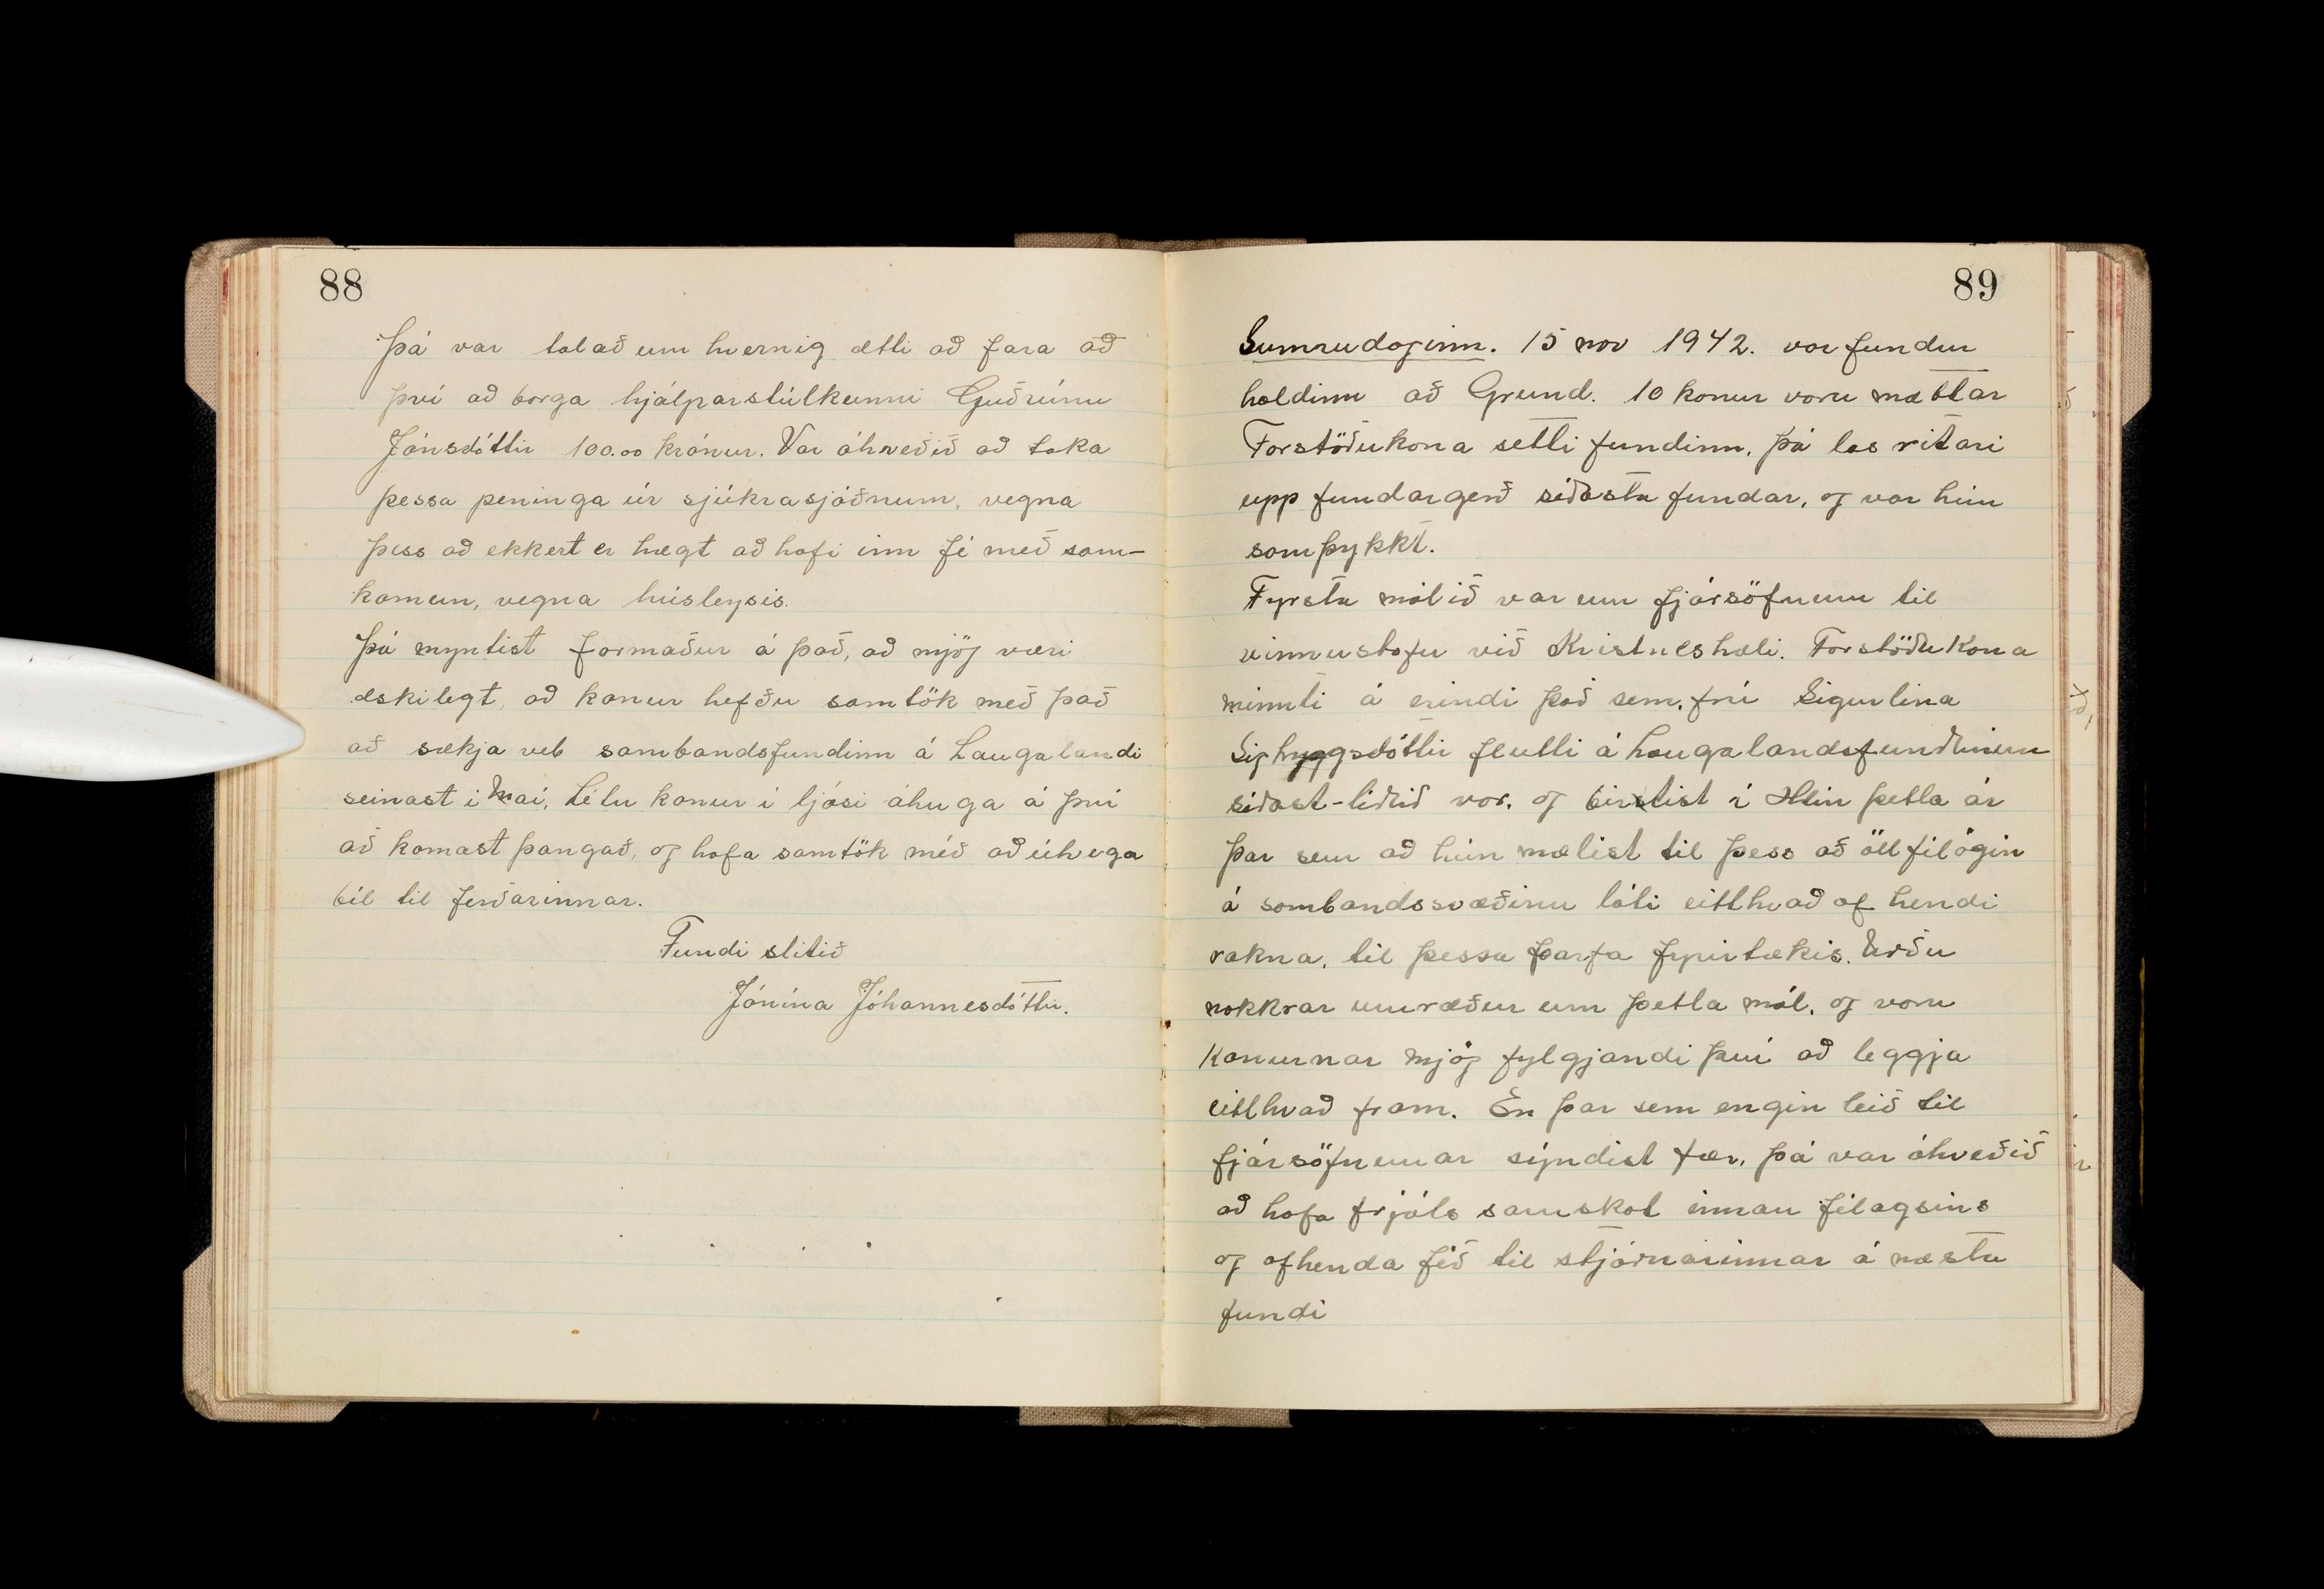 88
Þá var talað um hvernig ætti að fara að
því að borga hjálparstúlkunni Guðrúnu
Jónsdóttir 100.00 krónur. Var ákveðið að taka
þessa peninga úr sjúkrasjóðnum, vegna
þess að ekkert er hægt að hafi inn fé með sam-
komum, vegna húsleysis.
Þá myntist formaður á það, að mjög væri
æskilegt, að konur hefðu samtök með það
að sækja vel sambandsfundinn á Laugalandi
seinast í Maí, létu konur í ljósi áhuga á því
að komast þangað, og hafa samtök með að útvega
bíl til ferðarinnar.
Fundi slitið
Jónína Jóhannesdóttir.
89
Sunnudaginn. 15 nov 1942. var fundur
haldinn að Grund. 10 konur voru mættar
Forstöðukona setti fundinn, þá las ritari
upp fundargerð síðasta fundar, og var hún
samþykkt.
Fyrsta málið var um fjársöfnun til
vinnustofu við Kristneshæli. Forstöðukona
minnti á erindi það sem, frú Sigurlina
Sigtryggsdóttir flutti á Laugalandsfundinum
síðast-liðið vor. og birtist í Hlín þetta ár
þar sem að hún mælist til þess að öll félögin
á sambandssvæðinu láti eitthvað af hendi
rakna, til þessa þarfa fyrirtækis. Urðu
nokkrar umræður um þetta mál, og voru
konurnar mjög fylgjandi því að leggja
eitthvað fram. En þar sem engin leið til
fjársöfnunar sýndist fær, þá var ákveðið
að hafa frjáls samskot innan félagsins
og afhenda féð til stjórnarinnar á næsta
fundi